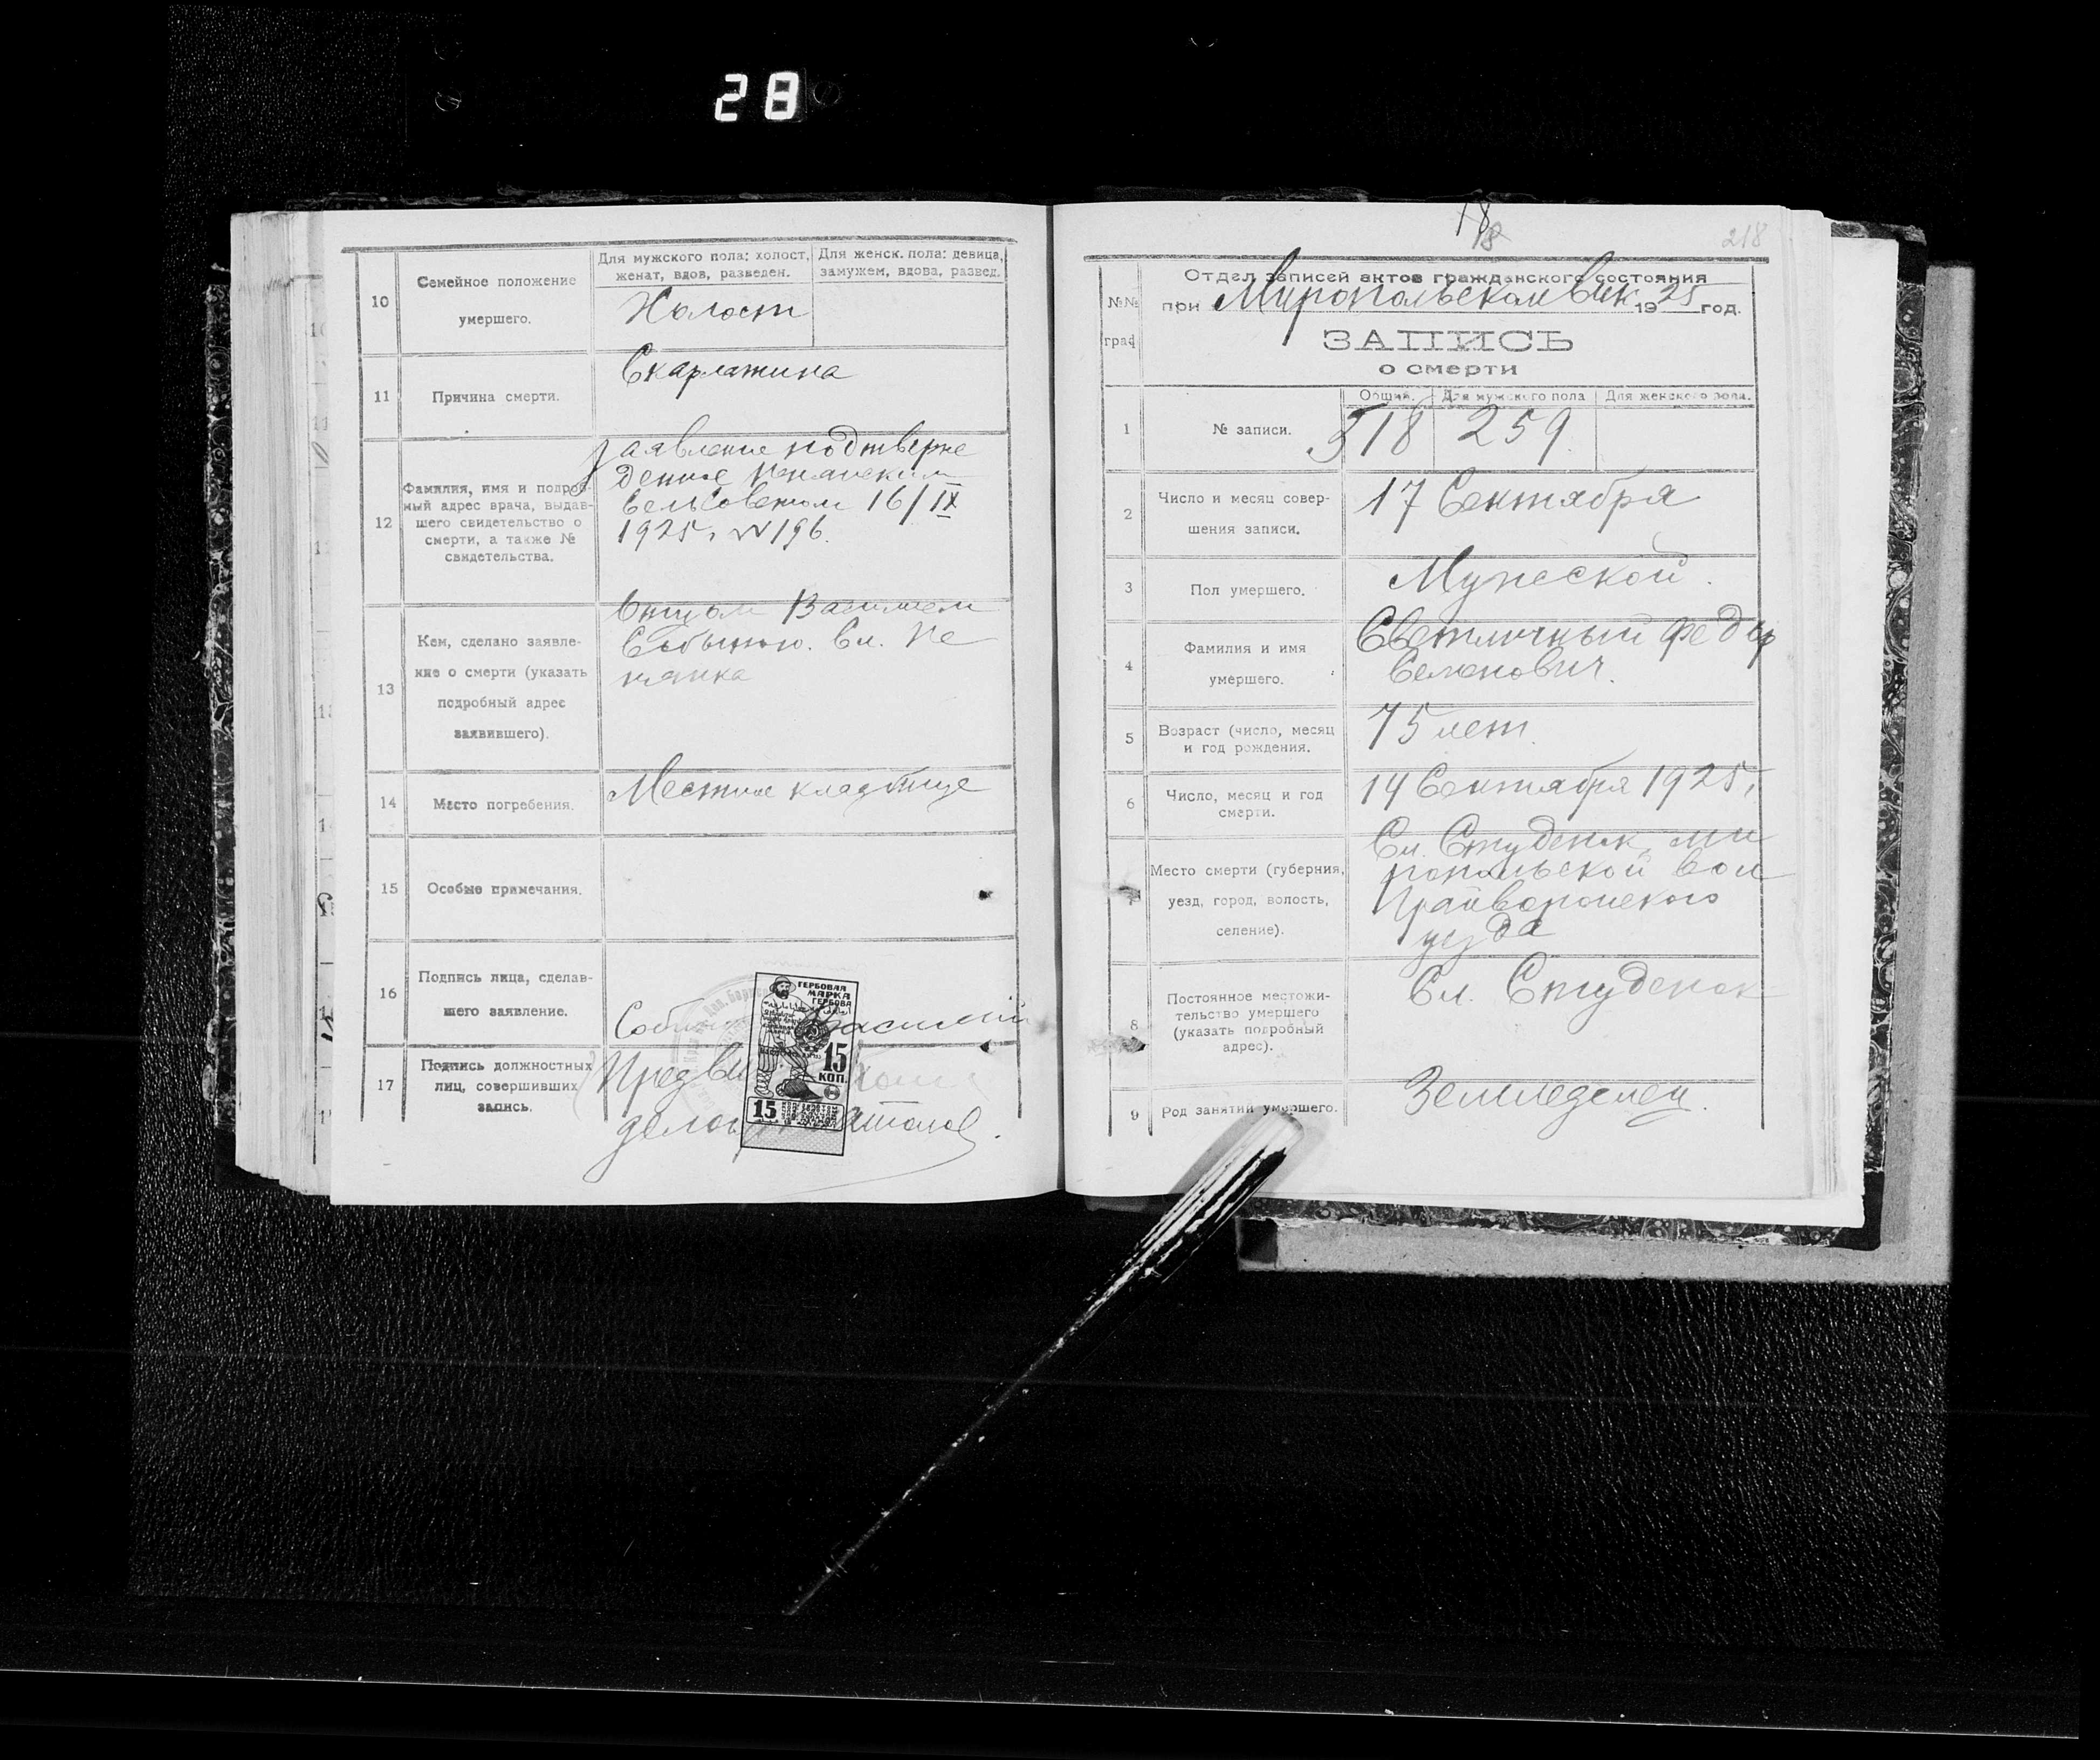 28
10
Семейное положение
умершего.
Для мужского пола: холост,
женат, вдов, разведен.
Для женск. пола: девица,
замужем, вдова, развед.
Холост
11
Причина смерти.
Скарлатина
12
Фамилия, имя и подроб-
ный адрес врача, выдав-
шего свидетельство о
смерти, а также №
свидетельства.
Заявление подтверж
денное Пенянским
сельсоветом 16/IX
1925 г. № 196.
13
Кем, сделано заявле-
ние о смерти (указать
подробный адрес
заявившего).
Отцом Василием
Собыною. Сл. Пе
нянка
14
Место погребения.
Местное кладбище
15
Особые примечания.
16
Подпись лица, сделав-
шего заявление.
Василий
17
Подпись должностных
лиц, совершивших
запись.
ГЕРБОВАЯ
МАРКА
ГЕРБОВА
15
КОП.
15
18
18
218
№№
граф
Отдел записей актов гражданского состояния
при Миропольском Вик 1925 год.
ЗАПИСЬ
о смерти
1
№ записи.
Общий.
Для мужского пола
Для женского пола.
518
259
2
Число и месяц совер-
шения записи.
17 Сентября
3
Пол умершего.
Мужеской.
4
Фамилия и имя
умершего.
Светличный Федор
Семенович.
5
Возраст (число, месяц
и год рождения.
75 лет.
6
Число, месяц и год
смерти.
14 Сентября 1925 г.
7
Место смерти (губерния,
уезд, город, волость,
селение).
Сл. Студенок, Ми
ропольской вол
Грайворонского
уезда
8
Постоянное местожи-
тельство умершего
(указать подробный
адрес).
Сл. Студенок
9
Род занятий умершего.
Земледелец.